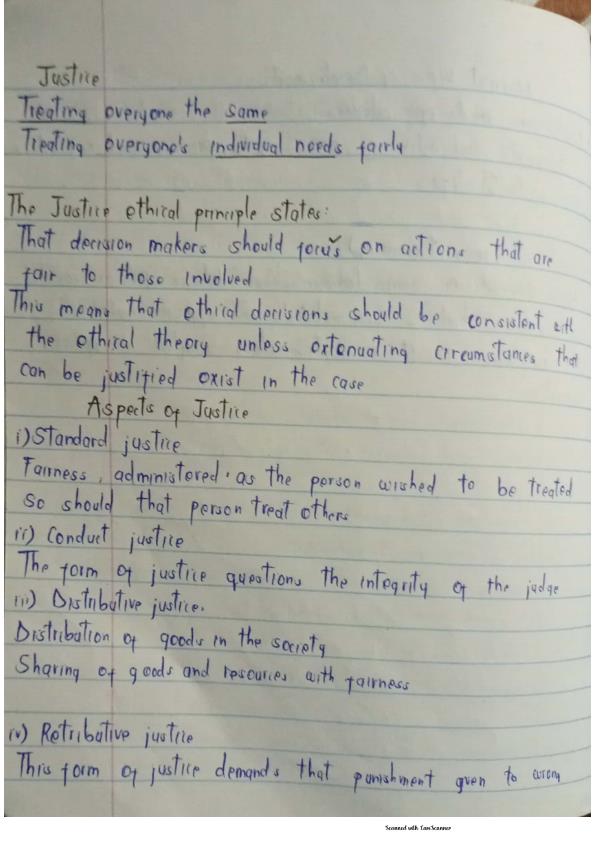 Justice
Treating everyone the same
Treating everyone's individual needs fairly
The Justice ethical principle states:
That decision makers should focus on actions that are
fair to those involved
This means that ethical decisions should be consistent with
the ethical theory unless extenuating circumstances that
can be justified exist in the case
Aspects of Justice
i) Standard justice
Fairness, administered. as the person wished to be treated
so should that person treat others
ii) Conduct justice
The form of justice questions the integrity of the judge
iii) Distributive justice.
Distribution of goods in the society
Sharing of goods and resources with fairness
iv) Retributive justice
This form of justice demands that punishment given to wrong
Scanned with CamScanner